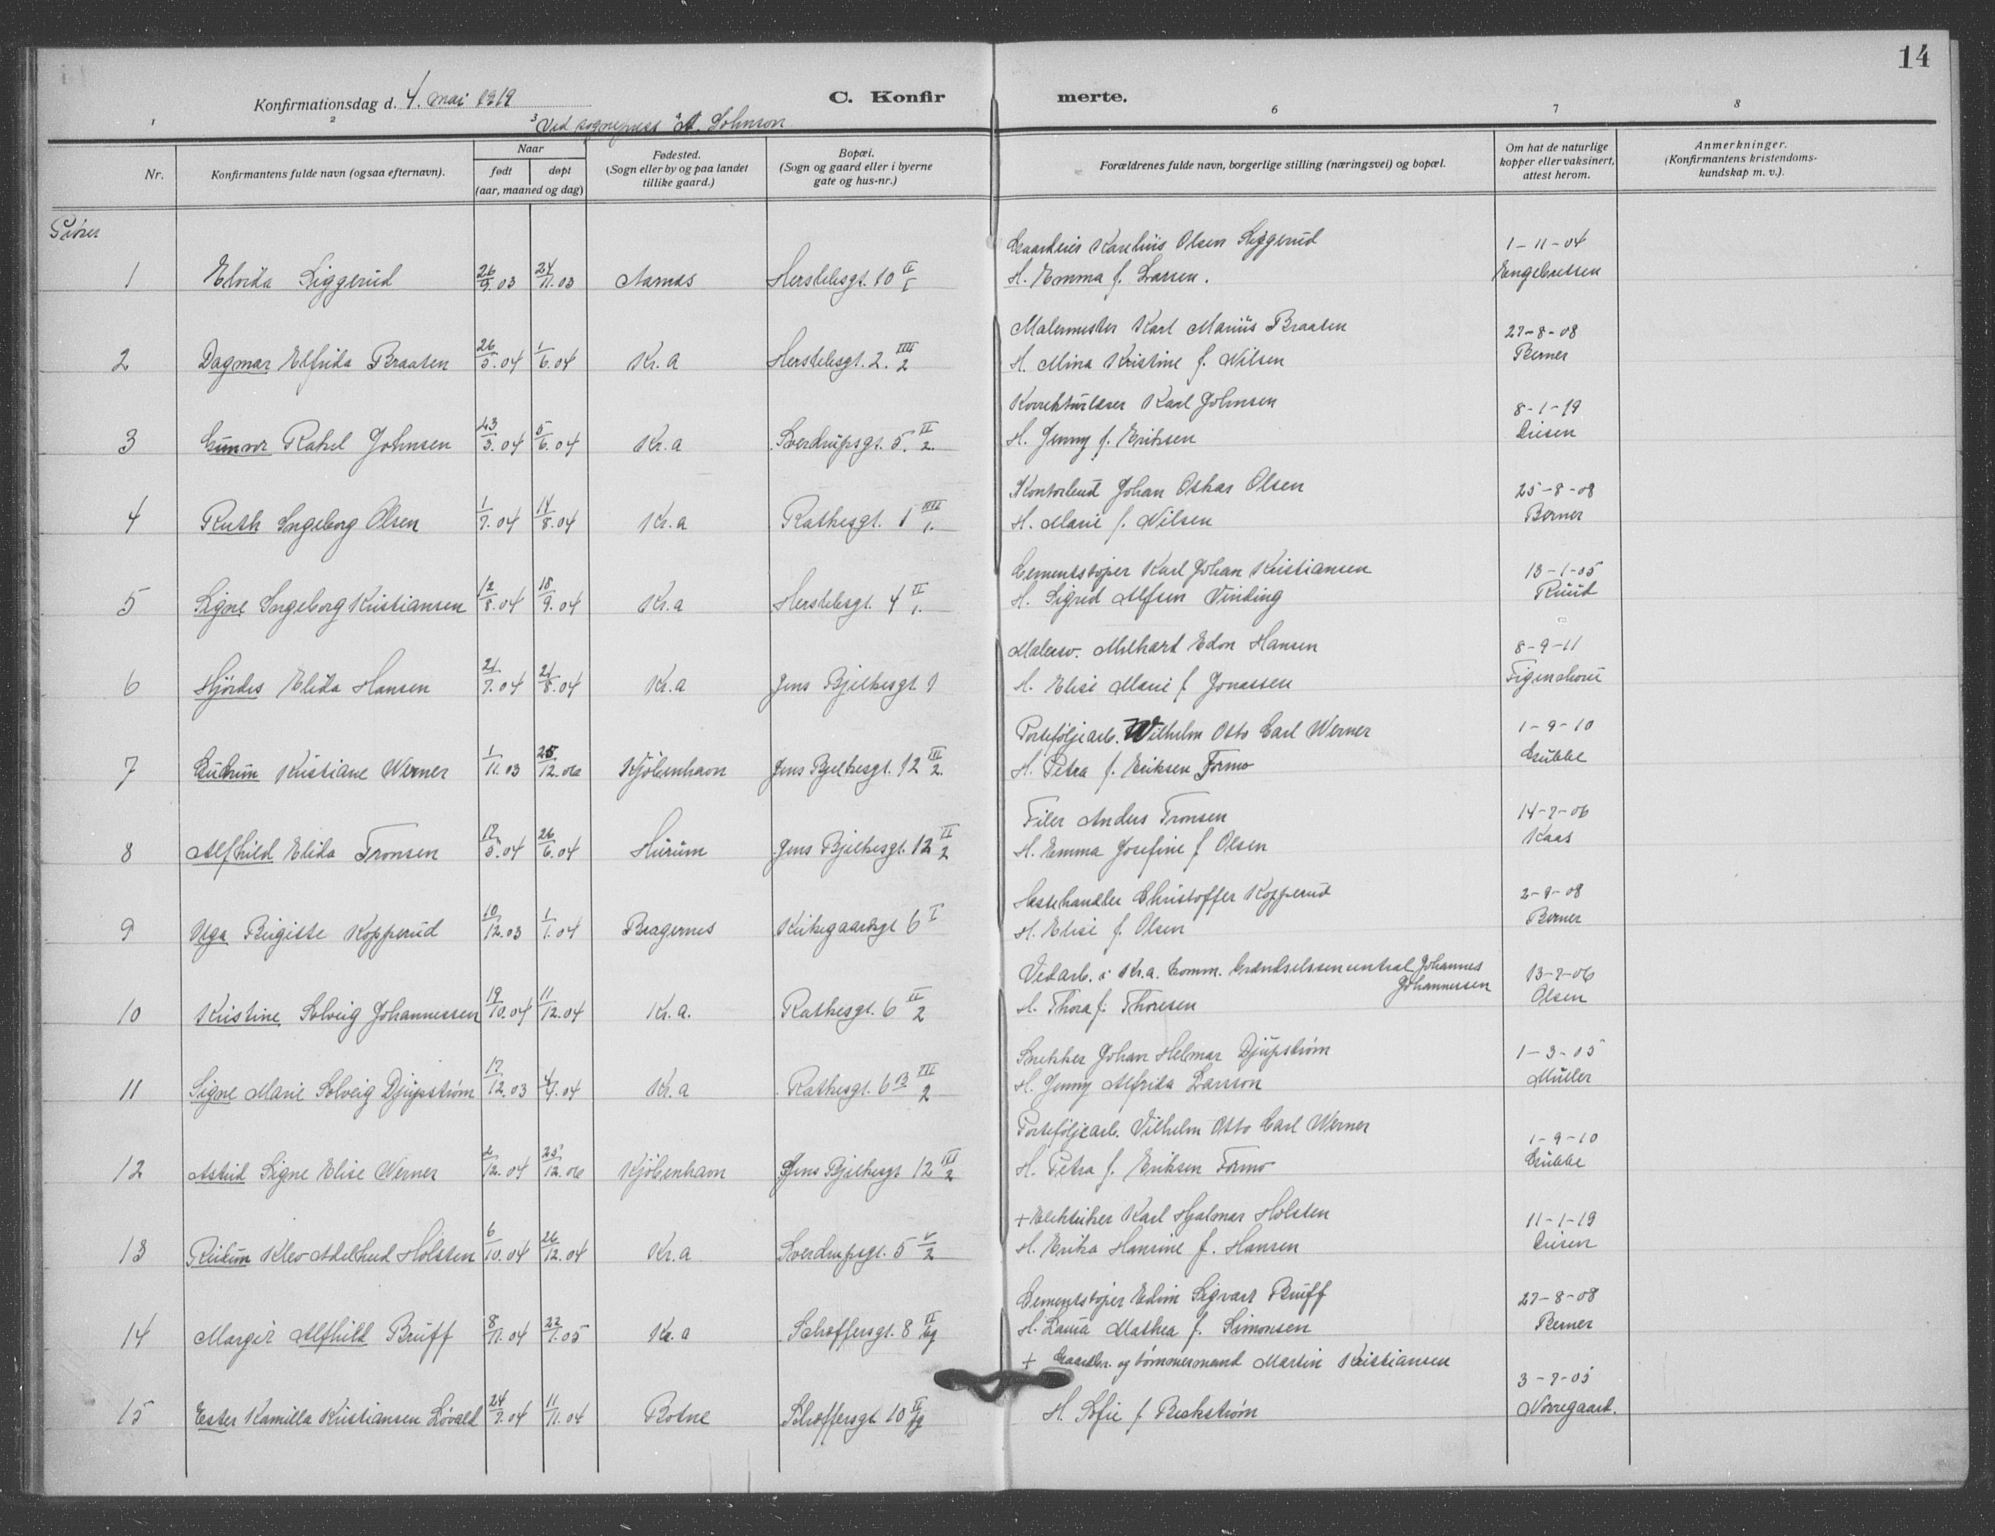 14
Konfirmationsdag d. 4. mai 1919
C. Konfirmerte.
Ved sogneprest A. Johnson
1 2 3 4 6 7 8
Nr.
Konfirmantens fulde navn (ogsaa efternavn).
Naar
født døpt
(aar, maaned og dag)
Fødested.
(Sogn eller by og paa landet
tillike gaard.)
Bopæl.
(Sogn og gaard eller i byerne
gate og hus-nr.)
Forældrenes fulde navn, borgerlige stilling (næringsvei) og bopæl.
Om hat de naturlige
kopper eller vaksinert,
attest herom.
Anmerkninger.
(Konfirmantens kristendoms-
kundskap m. v.).
Piker
Gaardeier Karelius Olsen Liggerud 1-11-04
1 Elvida Liggerud 26/9.03 24/11.03 Aarnes Herslebsgt. 10 II/I H. Emma f. Larsen. Engebretsen
Malermester Karl Marius Braaten 27-8-08
2 Dagmar Elfrida Braaten 26/5.04 1/6.04 Kr.a Herslebsgt. 2. III/2 H. Mina Kristine f. Nilsen Berner
Korrekturlæser Karl Johnsen 8-1-19
3 Gunvor Rakel Johnsen 23/3.04 5/6.04 Kr.a Sverdrupsgt. 5. II/2. H. Jenny f. Eriksen Diesen
Kontorbud Johan Oskar Olsen 25-8-08
4 Ruth Ingeborg Olsen 1/7.04 14/8.04 Kr.a Rathkesgt. 1 III/1. H. Marie f. Nilsen Berner
Cementstøper Karl Johan Kristiansen 13-1-05
5 Signe Ingeborg Kristiansen 12/8.04 18/9.04 Kr.a Herslebsgt. 4 II/1. H. Sigrid Alfsen Vinding Ruud
Malersv. Milhart Edon Hansen 8-9-11
6 Hjördis Elida Hansen 21/7.04 21/8.04 Kr.a Jens Bjelkesgt. 9 H. Elise Marie f. Jonassen Figenschou
Porteföljearb. Wilhelm Otto Carl Werner 1-9-10
7 Gudrun Kristiane Werner 1/11.03 25/12.06 Kjöbenhavn Jens Bjelkesgt. 12 III/2. H. Petra f. Eriksen Formo Gubbe
Filer Anders Tronsen 14-7-06
8 Alfhild Elida Tronsen 17/5.04 26/6.04 Hurum Jens Bjelkesgt. 12 II/2 H. Emma Josefine f. Olsen Kaas
Hestehandler Christoffer Kopperud 2-9-08
9 Aga Birgitte Kopperud 10/12.03 1/1.04 Bragernes Kirkegaardsgt 6 I H. Elise f. Olsen Berner
Vedarb. i Kr.a. Comm. Brændselssencentral Johannes 13-7-06
Johannessen
10 Kristine Solveig Johannessen 19/10.04 11/12.04 Kr.a. Rathkesgt. 6 II/2 H. Thora f. Thoresen Olsen
Snekker Johan Helmar Djupström 1-3-05
11 Signe Marie Solveig Djupström 17/12.03 4/4.04 Kr.a Rathkesgt. 6 B III/2 H. Jenny Alfrida Larsson Müller
Porteföljearb. Vilhelm Otto Carl Werner 1-9-10
12 Astrid Signe Elise Werner 2/12.04 25/12.06 Kjöbenhavn Jens Bjelkesgt 12 III/2 H. Petra f. Eriksen Formo Gubbe
+ Elektriker Karl Hjalmar Holsten 11-1-19
13 Reidun Kleo Adelheid Holsten 6/10.04 26/12.04 Kr.a Sverdrupsgt. 5 V/2 H. Erika Hansine f. Hansen Diesen
Cementstøper Edvin Sigvart Bruff 27-8-08
14 Margit Alfhild Bruff 8/11.04 22/1.05 Kr.a Schøffersgt. 8 II/bg H. Laura Mathea f. Simonsen Berner
+ Gaardbr. og tømmermand Martin Kristiansen 3-7-05
15 Ester Kamilla Kristiansen Løvald 24/9.04 11/11.04 Botne Schøffersgt 10 II/bg H. Sofie f. Bøckstrøm Norregaard.